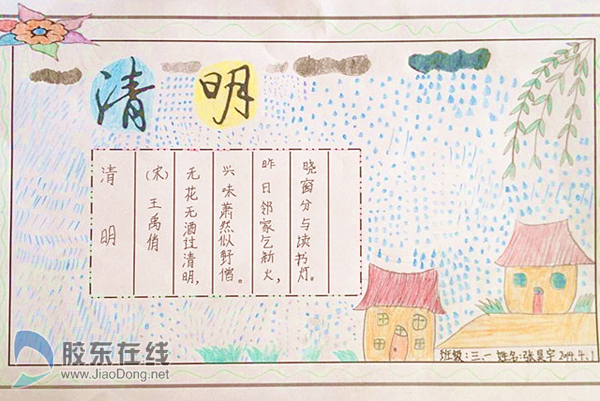 清明
清明
(宋)王禹俏
无花无酒过清明,
兴味萧然似野僧。
昨日邻家乞新火,
晓窗分与读书灯。
班级:三、一 姓名:张昊宇 2019.4.1
胶东在线
www.JiaoDong.net